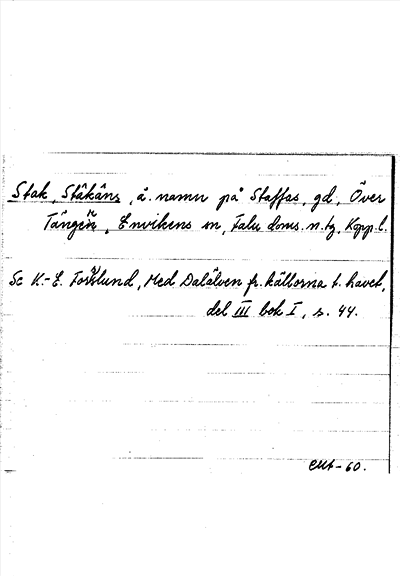 Stak, Ståkåns, å. namn på Staffas, gd, Över
Tängen, Envikens sn, Falu doms. n. tg, Kopp. l.
Se K.-E. Forsslund, Med Dalälven fr. källorna t. havet,
del III bok I, s. 44.
-60.